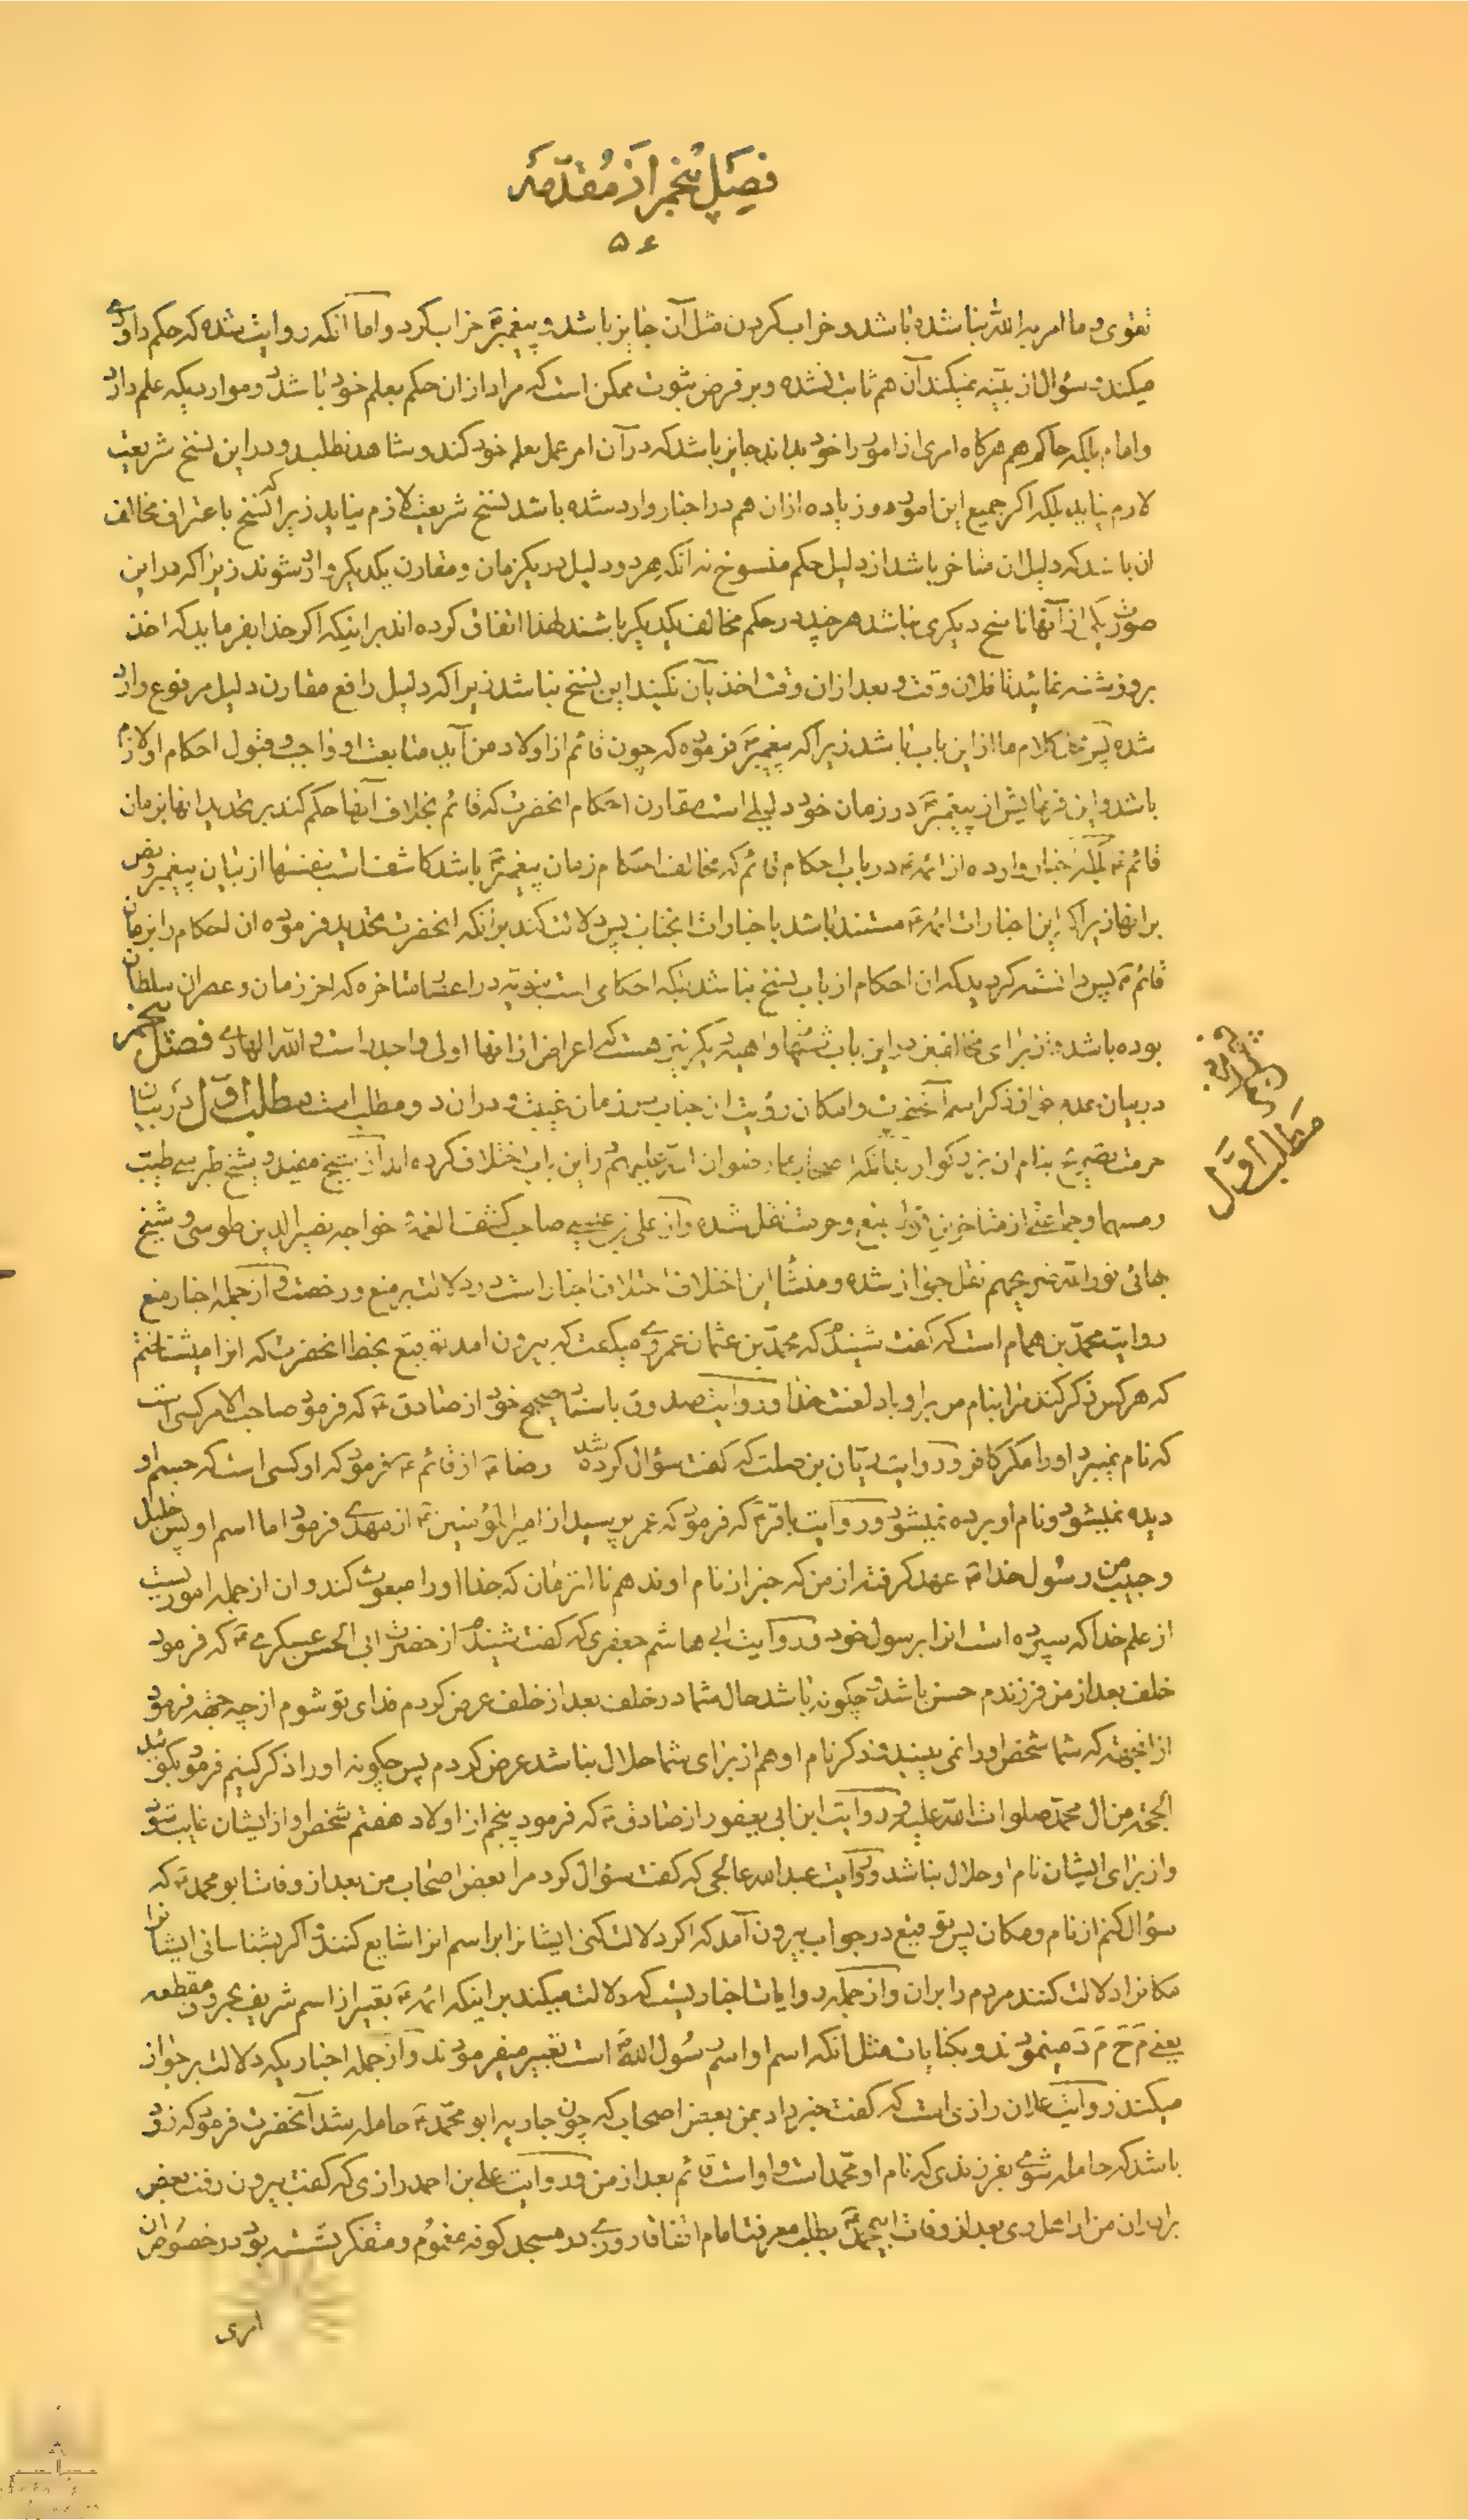 فصل پنجم از مقدمه
۵۶
تقوی و ما امر به الله بنا شده باشد و خراب کردن مثل آن جایز باشد و پیغمبرؐ خراب کرد و اما آنکه روایت شده که حکم داودی
میکند و سؤال از بینه نمیکند آن هم ثابت نشده و بر فرض ثبوت ممکن است که مراد از ان حکم بعلم خود باشد در مواردیکه علم دارد
و امام بلکه حاکم هم هرگاه امری از امور را خود بداند جایز باشد که در آن امر عمل بعلم خود کند و شاهد نطلبد و در این نسخ شریعت
لازم نیاید بلکه اگر جمیع این امور و زیاده از ان هم در اخبار وارد شده باشد نسخ شریعت لازم نیاید زیرا که نسخ باعتراف مخالف
ان باشد که دلیل ان متاخر باشد از دلیل حکم منسوخ نه انکه هر دو دلیل در یکزمان و مقارن یکدیگر وارد شوند زیرا که در این
صورت یکی از آنها ناسخ دیگری نباشد هر چند در حکم مخالف یکدیگر باشند لهذا اتفاق کرده اند بر اینکه اگر خدا بفرماید که اخذ
بروز شنبه نمائید تا فلان وقت و بعد از ان وقت اخذ بآن نکنید این نسخ نباشد زیرا که دلیل رافع مقارن دلیل مرفوع وارد
شده پس کلام ما از این باب باشد زیرا که پیغمبرؐ فرموده که چون قائم از اولاد من آید متابعت او واجب و قبول احکام او لازم
باشد و این فرمایش از پیغمبرؐ در زمان خود دلیلی است مقارن احکام انحضرت که قائم بخلاف آنها حکم کند بر تحدید انها بزمان
قائم ع بلکه اخبار وارده از ائمه ع در باب احکام قائم که مخالف احکام زمان پیغمبرؐ باشد کاشف است بنفسها از بیان پیغمبر و نص
بر انها زیرا که این اخبارات ائمه ع مستند باشد باخبارات انجناب پس دلالت کند بر انکه انحضرت تحدید فرموده ان احکام را بزمان
قائم ع پس دانسته گردید که ان احکام از باب نسخ نباشد بلکه احکامی است نبویه در اعصار متاخره که اخر زمان و عصر ان سلطان
بوده باشد و از برای مخالفین در این باب شبهها واهیه دیگر نیز هست که اعراض از انها اولی و اجدر است و الله الهادی فصل پنجم
در بیان عدم جواز ذکر اسم آنحضرت و امکان رؤیت ان جناب در زمان غیبت و در ان دو مطلب است مطلب اول در بیان
حرمت تصریح بنام ان بزرگوار بدانکه اصحاب ما رضوان الله علیهم در این باب اختلاف کرده اند از شیخ مفید و شیخ طبرسی طیب
رمسهما و جماعتی از متاخرین قول بمنع و حرمت نقل شده و از علی بن عیسی صاحب کشف الغمه و خواجه نصیر الدین طوسی و شیخ
بهائی نور الله ضریحهم نقل جواز شده و منشأ این اختلاف اختلاف اخبار است در دلالت بر منع و رخصت و از جمله اخبار منع
روایت محمد بن همام است که گفت شنیدم که محمد بن عثمان عمروی میگفت که بیرون امد توقیع بخط انحضرت که انرا میشناختم
که هر کس ذکر کند مرا بنام من بر او باد لعنت خدا و روایت صدوق باسناد صحیح خود از صادق ع که فرمود صاحب الامر کسی است
که نام نمیبرد او را مگر کافر و روایت ریان بن صلت که گفت سؤال کرده شد رضا ع از قائم ع فرمود که او کسی است که جسم او
دیده نمیشود و نام او برده نمیشود و روایت باقر ع که فرمود که عمر پرسید از امیر المؤمنین ع از مهدی فرمود اما اسم او پس خلیل
و حبیب من رسول خدا ص عهد گرفته از من که خبر از نام او ندهم تا انزمان که خدا او را مبعوث کند و ان از جمله اموریست
از علم خدا که سپرده است انرا برسول خود و روایت ابی هاشم جعفری که گفت شنیدم از حضرت ابی الحسن عسکری ع که فرمود
خلف بعد از من فرزندم حسن باشد و چگونه باشد حال شما در خلف بعد از خلف عرض کردم فدای تو شوم از چه جهة فرمود
از اینجهة که شما شخص او را نمی بینید و ذکر نام او هم از برای شما حلال نباشد عرض کردم پس چگونه او را ذکر کنیم فرمود بگوئید
الحجة من ال محمد صلوات الله علیه و روایت ابن ابی یعفور از صادق ع که فرمود پنجم از اولاد هفتم شخص او از ایشان غایب شود
و از برای ایشان نام او حلال نباشد و روایت عبد الله صالحی که گفت سؤال کرد مرا بعض اصحاب من بعد از وفات ابو محمد ع که
سؤال کنم از نام و مکان پس توقیع در جواب بیرون آمد که اگر دلالت کنی ایشانرا بر اسم انرا شایع کنند و اگر بشناسانی ایشانرا
مکانرا دلالت کنند مردم را بر ان و از جمله روایات اخباریست که دلالت میکند بر اینکه ائمه ع تعبیر از اسم شریف بحروف مقطعه
یعنی مَ حَ مَ دَ مینمودند و بکنایات مثل انکه اسم او اسم رسول اللهؐ است تعبیر میفرمودند و از جمله اخباریکه دلالت بر جواز
میکند روایت علان رازی است که گفت خبر داد بمن بعض اصحاب که چون جاریه ابو محمد ع حامله شد آنحضرت فرمود که زود
باشد که حامله شوی بفرزندی که نام او محمد است و او است قائم بعد از من و روایت علی بن احمد رازی که گفت بیرون رفت بعض
برادران من از اهل ری بعد از وفات ابی محمد ع بطلب معرفت امام اتفاقا روزی در مسجد کوفه مغموم و متفکر نشسته بود در خصوص ان
مطلب اول